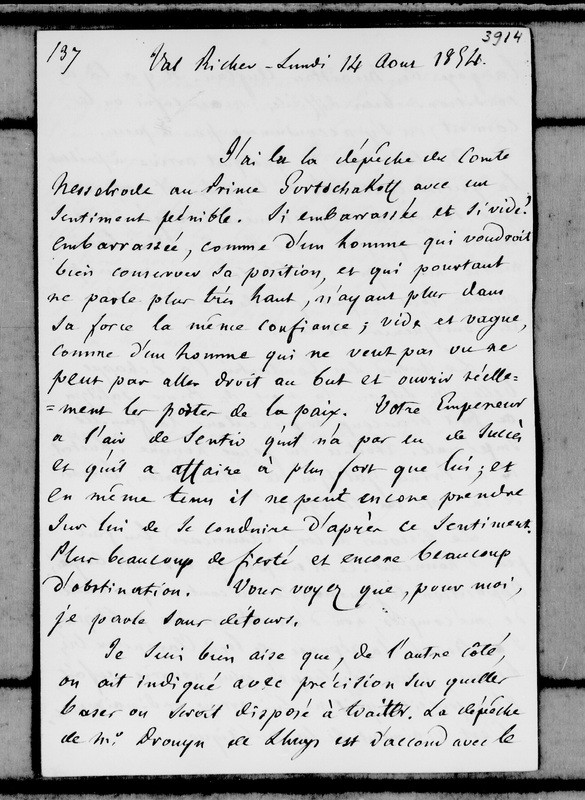 3914
137
Val Richer - Lundi 14 Aout 1854.
J'ai lu la dépêche du Comte
Nesselrode au Prince Gortschakoff avec un
sentiment pénible. Si embarrassée et si vide !
embarrassée, comme d'un homme qui voudroit
bien conserver sa position, et qui pourtant
ne parle plus très haut, n'ayant plus dans
sa force la même confiance ; vide et vague,
comme d'un homme qui ne veut pas ou ne
peut pas aller droit au but et ouvrir réelle=
=ment les portes de la paix. Votre Empereur
a l'air de sentir qu'il n'a pas eu de succès
et qu'il a affaire à plus fort que lui ; et
en même tems il ne peut encore prendre
sur lui de se conduire d'après ce sentiment.
Plus beaucoup de fierté et encore beaucoup
d'obstination. Vous voyez que, pour moi,
je parle sans détours.
Je suis bien aise que, de l'autre côté,
on ait indiqué avec précision sur quelles
bases on seroit disposé à traiter. La dépêche
de Mr. Drouyn de Lhuys est d'accord avec le